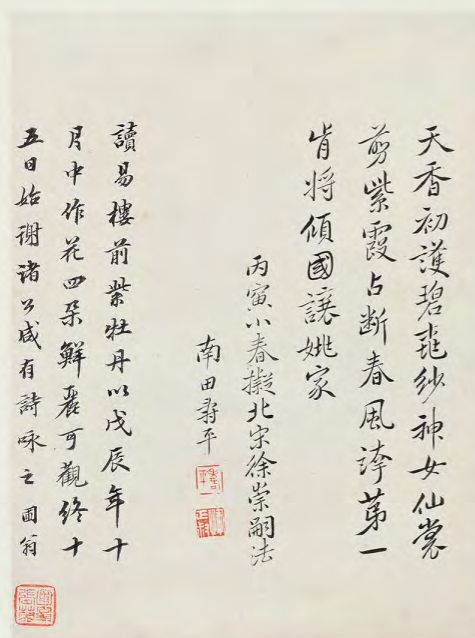 天香初護碧㡡紗神女仙裳
剪紫霞占断春風誇第一
肯將傾國讓姚家
丙寅小春擬北宋徐崇嗣法
南田壽平
壽平
讀易樓前紫牡丹以戊辰年十
月中作花四朵鮮麗可觀終十
五日始謝諸公咸有詩咏之 圃翁